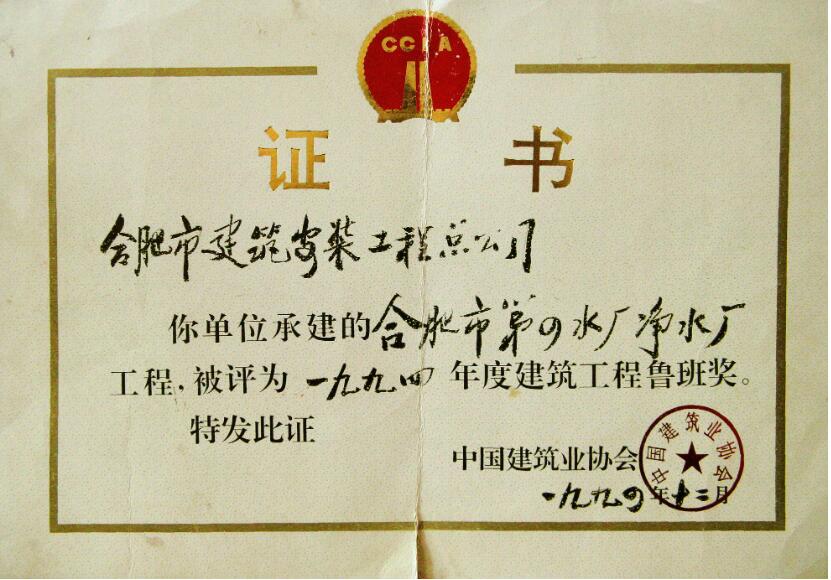 CCIA
证书
合肥市建筑安装工程总公司
你单位承建的合肥市第四水厂净水厂
工程,被评为一九九四年度建筑工程鲁班奖。
特发此证
中国建筑业协会
中国建筑业协会
一九九四年十二月